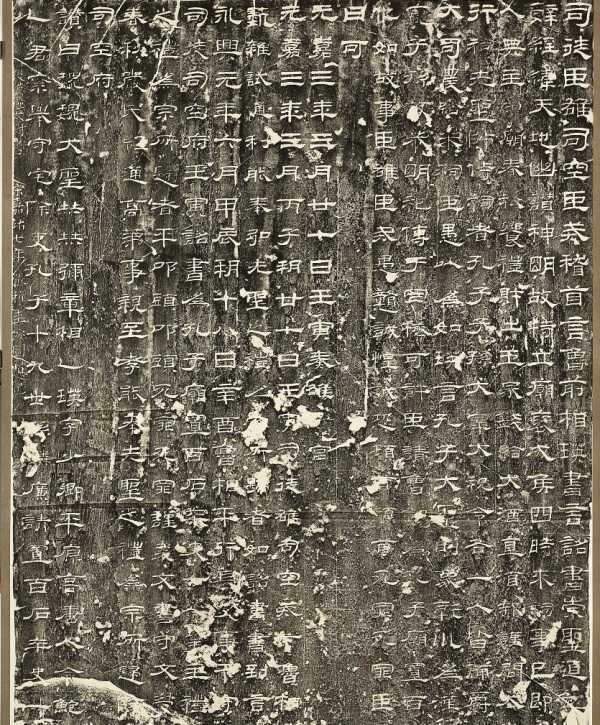 司徒臣雄司空臣戒稽首言魯前相瑛書言詔書崇聖道勉
辭經緯天地幽讚神明故特立廟褒成侯四時來祠事已即
人典主守廟春秋饗禮財出王家錢給大酒直須報謹問大
行祠先聖師侍祠者孔子子孫大宰大祝令各一人皆備爵
大司農給米祠臣愚以為如瑛言孔子大聖則象乾坤為漢
寵子孫敬恭明祀傳于罔極可許臣請魯相為孔子廟置百
他如故事臣雄臣戒愚戇誠惶誠恐頓首頓首死罪死罪臣
曰可
元嘉三年三月廿七日壬寅奏雒陽宮
元嘉三年三月丙子朔廿七日壬寅司徒雄司空戒下魯相
藝雜試通利能奉弘先聖之禮為宗所歸者如詔書書到言
永興元年六月甲辰朔十八日辛酉魯相平行長史事卞守
司徒司空府壬寅詔書為孔子廟置百石卒史一人掌主禮
之禮為宗所歸者平叩頭叩頭死罪死罪謹案文書守文學
春秋嚴氏經通高第事親至孝能奉先聖之禮為宗所歸除
司空府
讚曰巍巍大聖赫赫彌章相乙瑛字少卿平原高唐人令鮑
君察舉守宅除吏孔子十九世孫麟廉請置百石卒史一